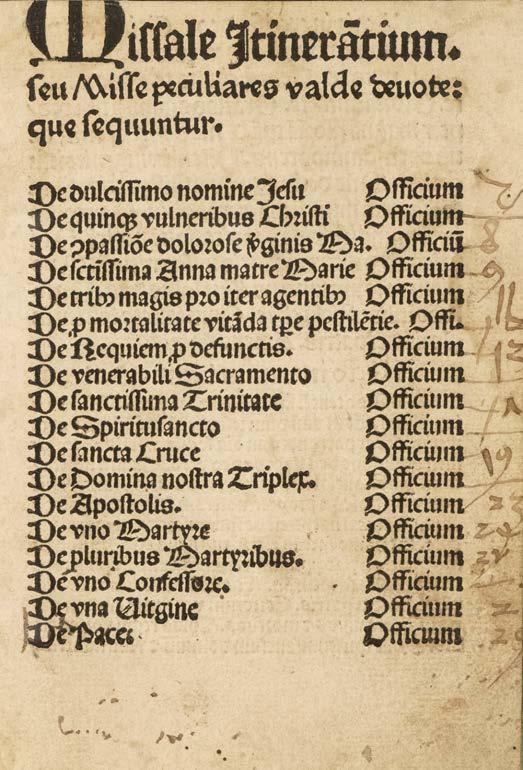 Missale Itinerãtium.
seu Misse peculiares valde deuote:
que sequuntur.
De dulcissimo nomine Jesu Officium
De quinqȝ vulneribus Christi Officium
De ↄpassiõe dolorose v̾ginis Ma. Officiũ
De sctissima Anna matre Marie Officium
De tribꝰ magis pro iter agentibꝰ Officium
De ꝓ mortalitate vitãda tꝑe pestilẽtie. Offi.
De Requiem ꝓ defunctis. Officium
De venerabili Sacramento Officium
De sanctissima Trinitate Officium
De Spiritusancto Officium
De sancta Cruce Officium
De Domina nostra Triplex. Officium
De Apostolis. Officium
De vno Martyre Officium
De pluribus Martyribus. Officium
De vno Confessore. Officium
De vna Uirgine Officium
De Pace: Officium
8
9
19